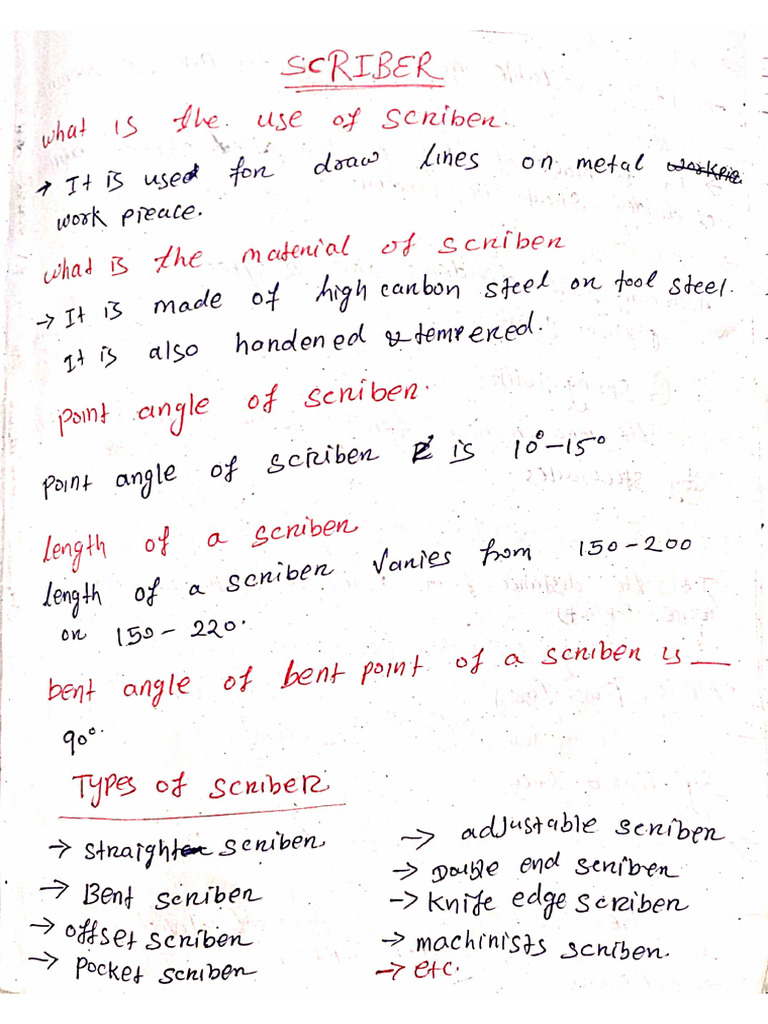 SCRIBER
what is the use of scriber.
→ It is used for draw lines on metal
work pieace.
what is the material of scriber
→ It is made of high carbon steel or tool steel.
It is also hardened & tempered.
point angle of scriber.
point angle of scriber is 10°-15°
length of a scriber
length of a scriber varies from 150-200
or 150-220.
bent angle of bent point of a scriber is __
90°.
Types of scriber
→ straight scriber
→ Bent scriber
→ offset scriber
→ pocket scriber
→ adjustable scriber
→ Double end scriber
→ knife edge scriber
→ machinists scriber.
→ etc.